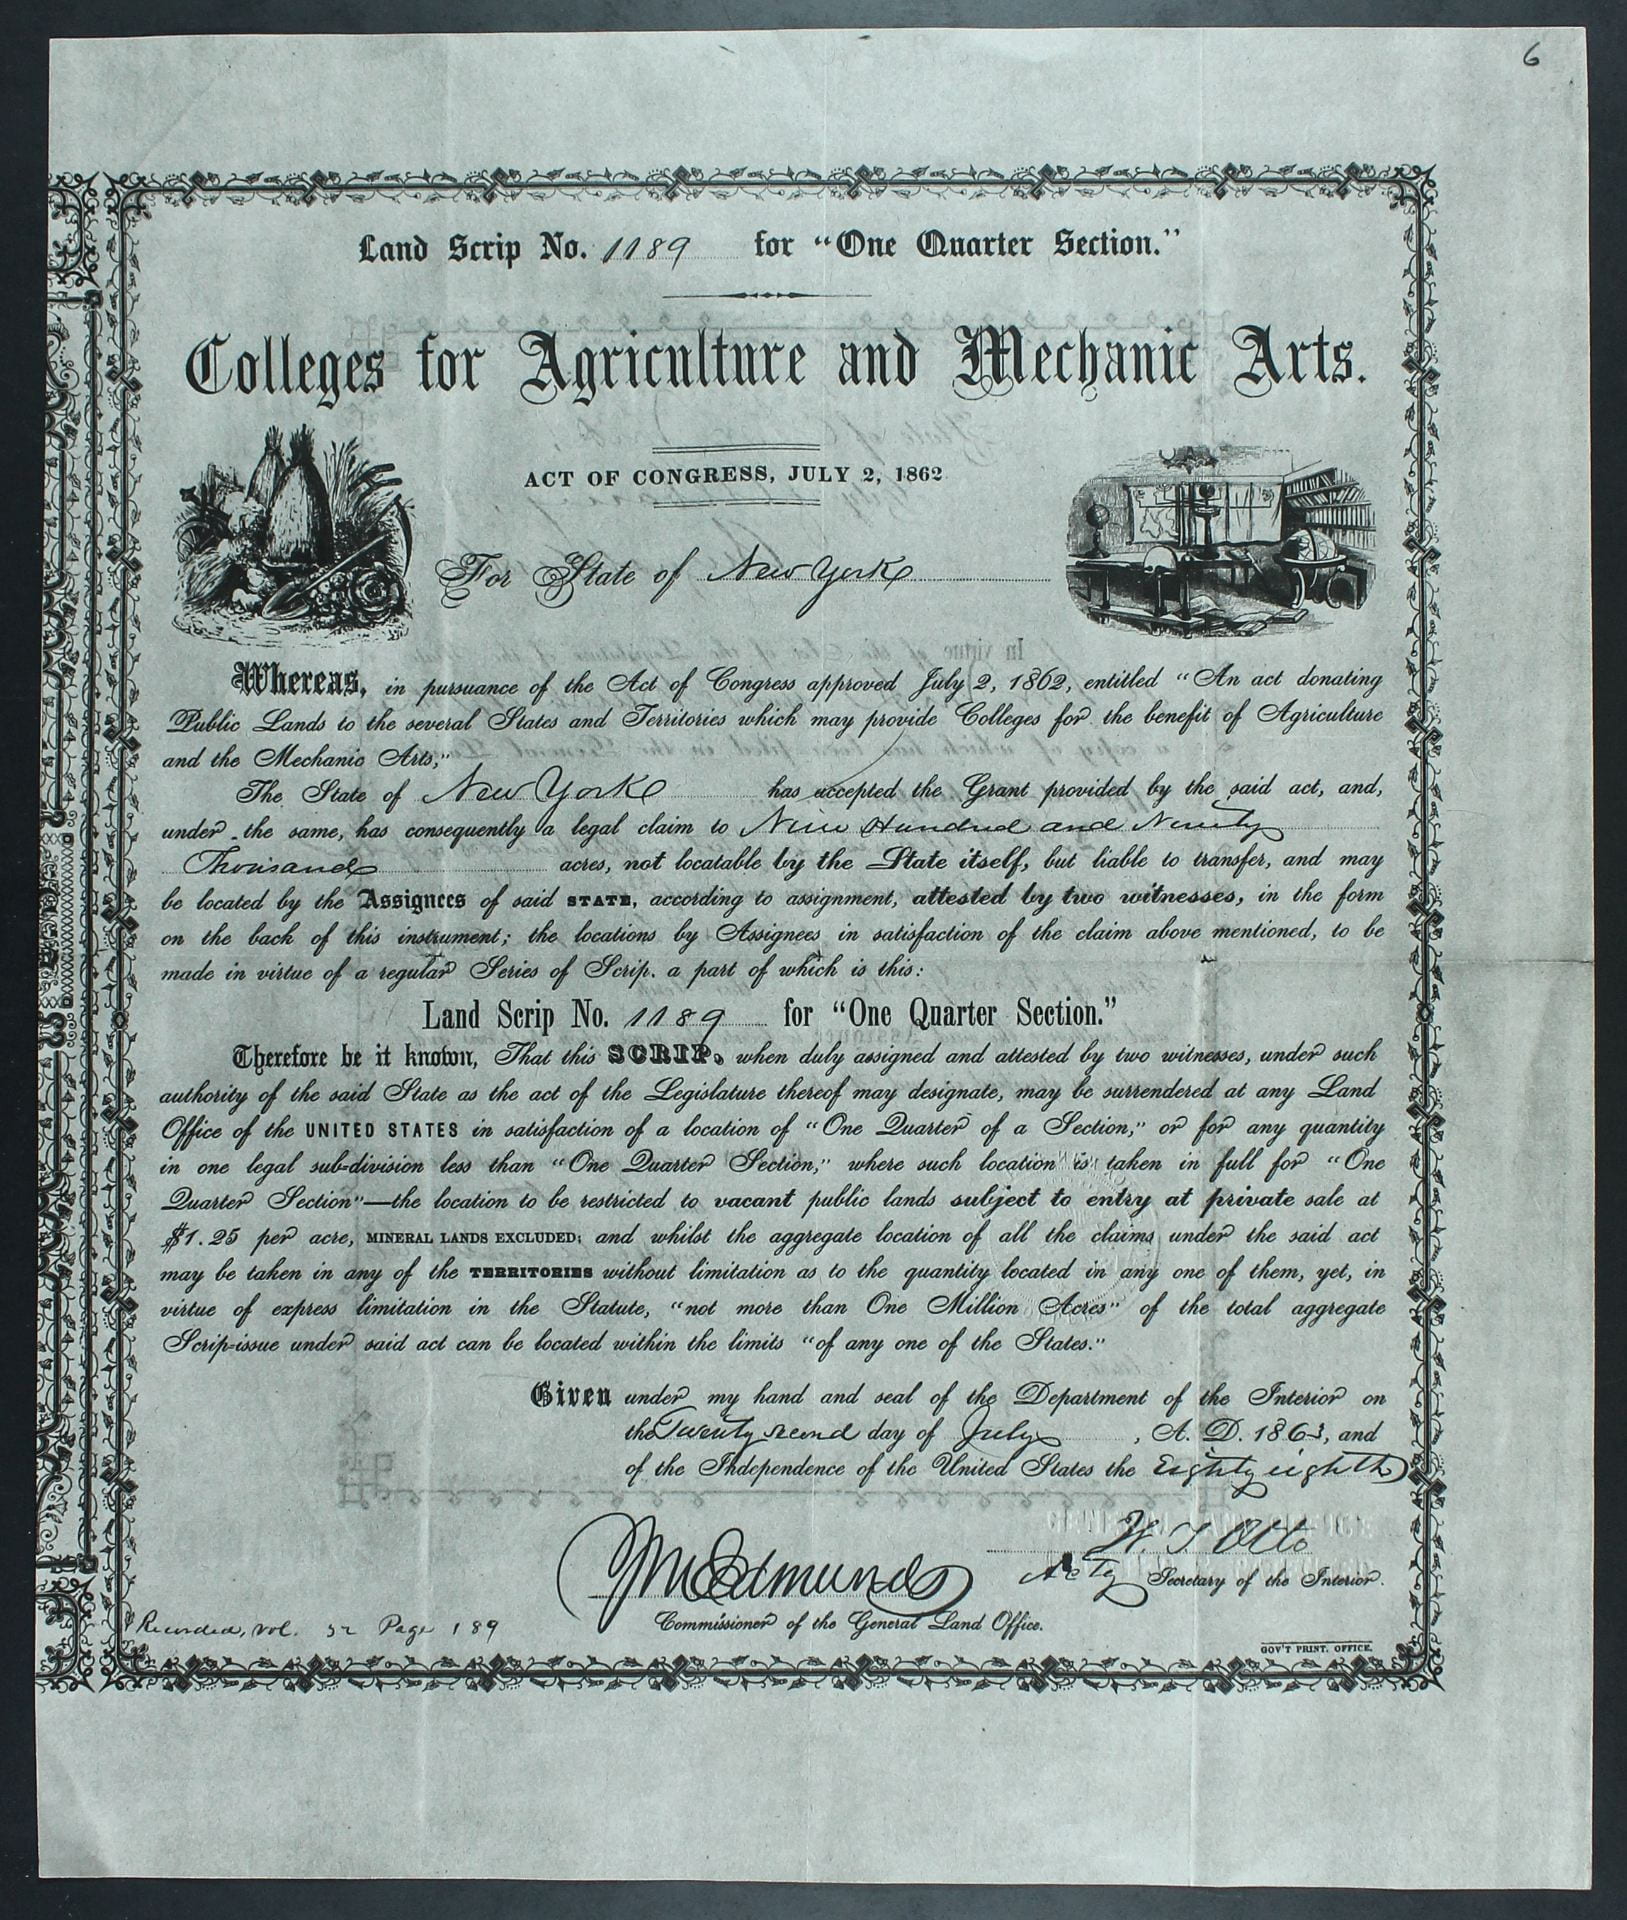 6
Land Scrip No. 1189 for "One Quarter Section."
Colleges for Agriculture and Mechanic Arts.
ACT OF CONGRESS, JULY 2, 1862
For State of New York
Whereas, in pursuance of the Act of Congress approved July 2, 1862, entitled "An act donating
Public Lands to the several States and Territories which may provide Colleges for the benefit of Agriculture
and the Mechanic Arts,"
The State of New York has accepted the Grant provided by the said act, and,
under the same, has consequently a legal claim to Nine Hundred and Ninety
Thousand acres, not locatable by the State itself, but liable to transfer, and may
be located by the Assignees of said STATE, according to assignment, attested by two witnesses, in the form
on the back of this instrument; the locations by Assignees in satisfaction of the claim above mentioned, to be
made in virtue of a regular Series of Scrip. a part of which is this:
Land Scrip No. 1189 for "One Quarter Section."
Therefore be it known, That this SCRIP, when duly assigned and attested by two witnesses, under such
authority of the said State as the act of the Legislature thereof may designate, may be surrendered at any Land
Office of the UNITED STATES in satisfaction of a location of "One Quarter of a Section," or for any quantity
in one legal sub-division less than "One Quarter Section," where such location is taken in full for "One
Quarter Section"—the location to be restricted to vacant public lands subject to entry at private sale at
$1.25 per acre, MINERAL LANDS EXCLUDED; and whilst the aggregate location of all the claims under the said act
may be taken in any of the TERRITORIES without limitation as to the quantity located in any one of them, yet, in
virtue of express limitation in the Statute, "not more than One Million Acres" of the total aggregate
Scrip-issue under said act can be located within the limits "of any one of the States."
Given under my hand and seal of the Department of the Interior on
the Twenty second day of July, A. D. 1863, and
of the Independence of the United States the Eighty eighth
W. T. Otto
Actg Secretary of the Interior.
JM Edmunds
Commissioner of the General Land Office.
Recorded, Vol. 52 Page 189
GOV'T PRINT. OFFICE.